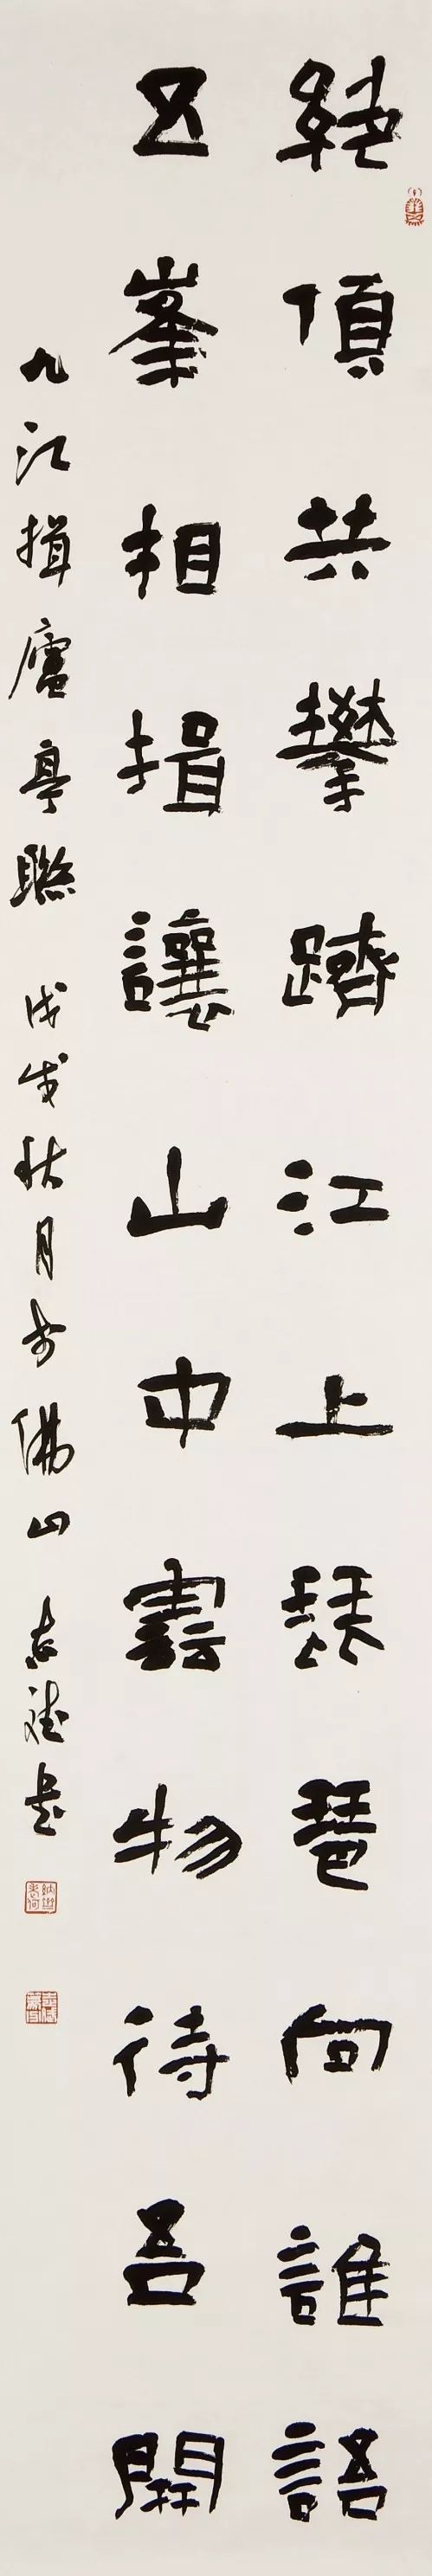 絶頂共攀躋江上琵琶向誰語
五峯相揖讓山中雲物待吾開
九江揖廬亭聯 戊戌秋月於佛山 志 書